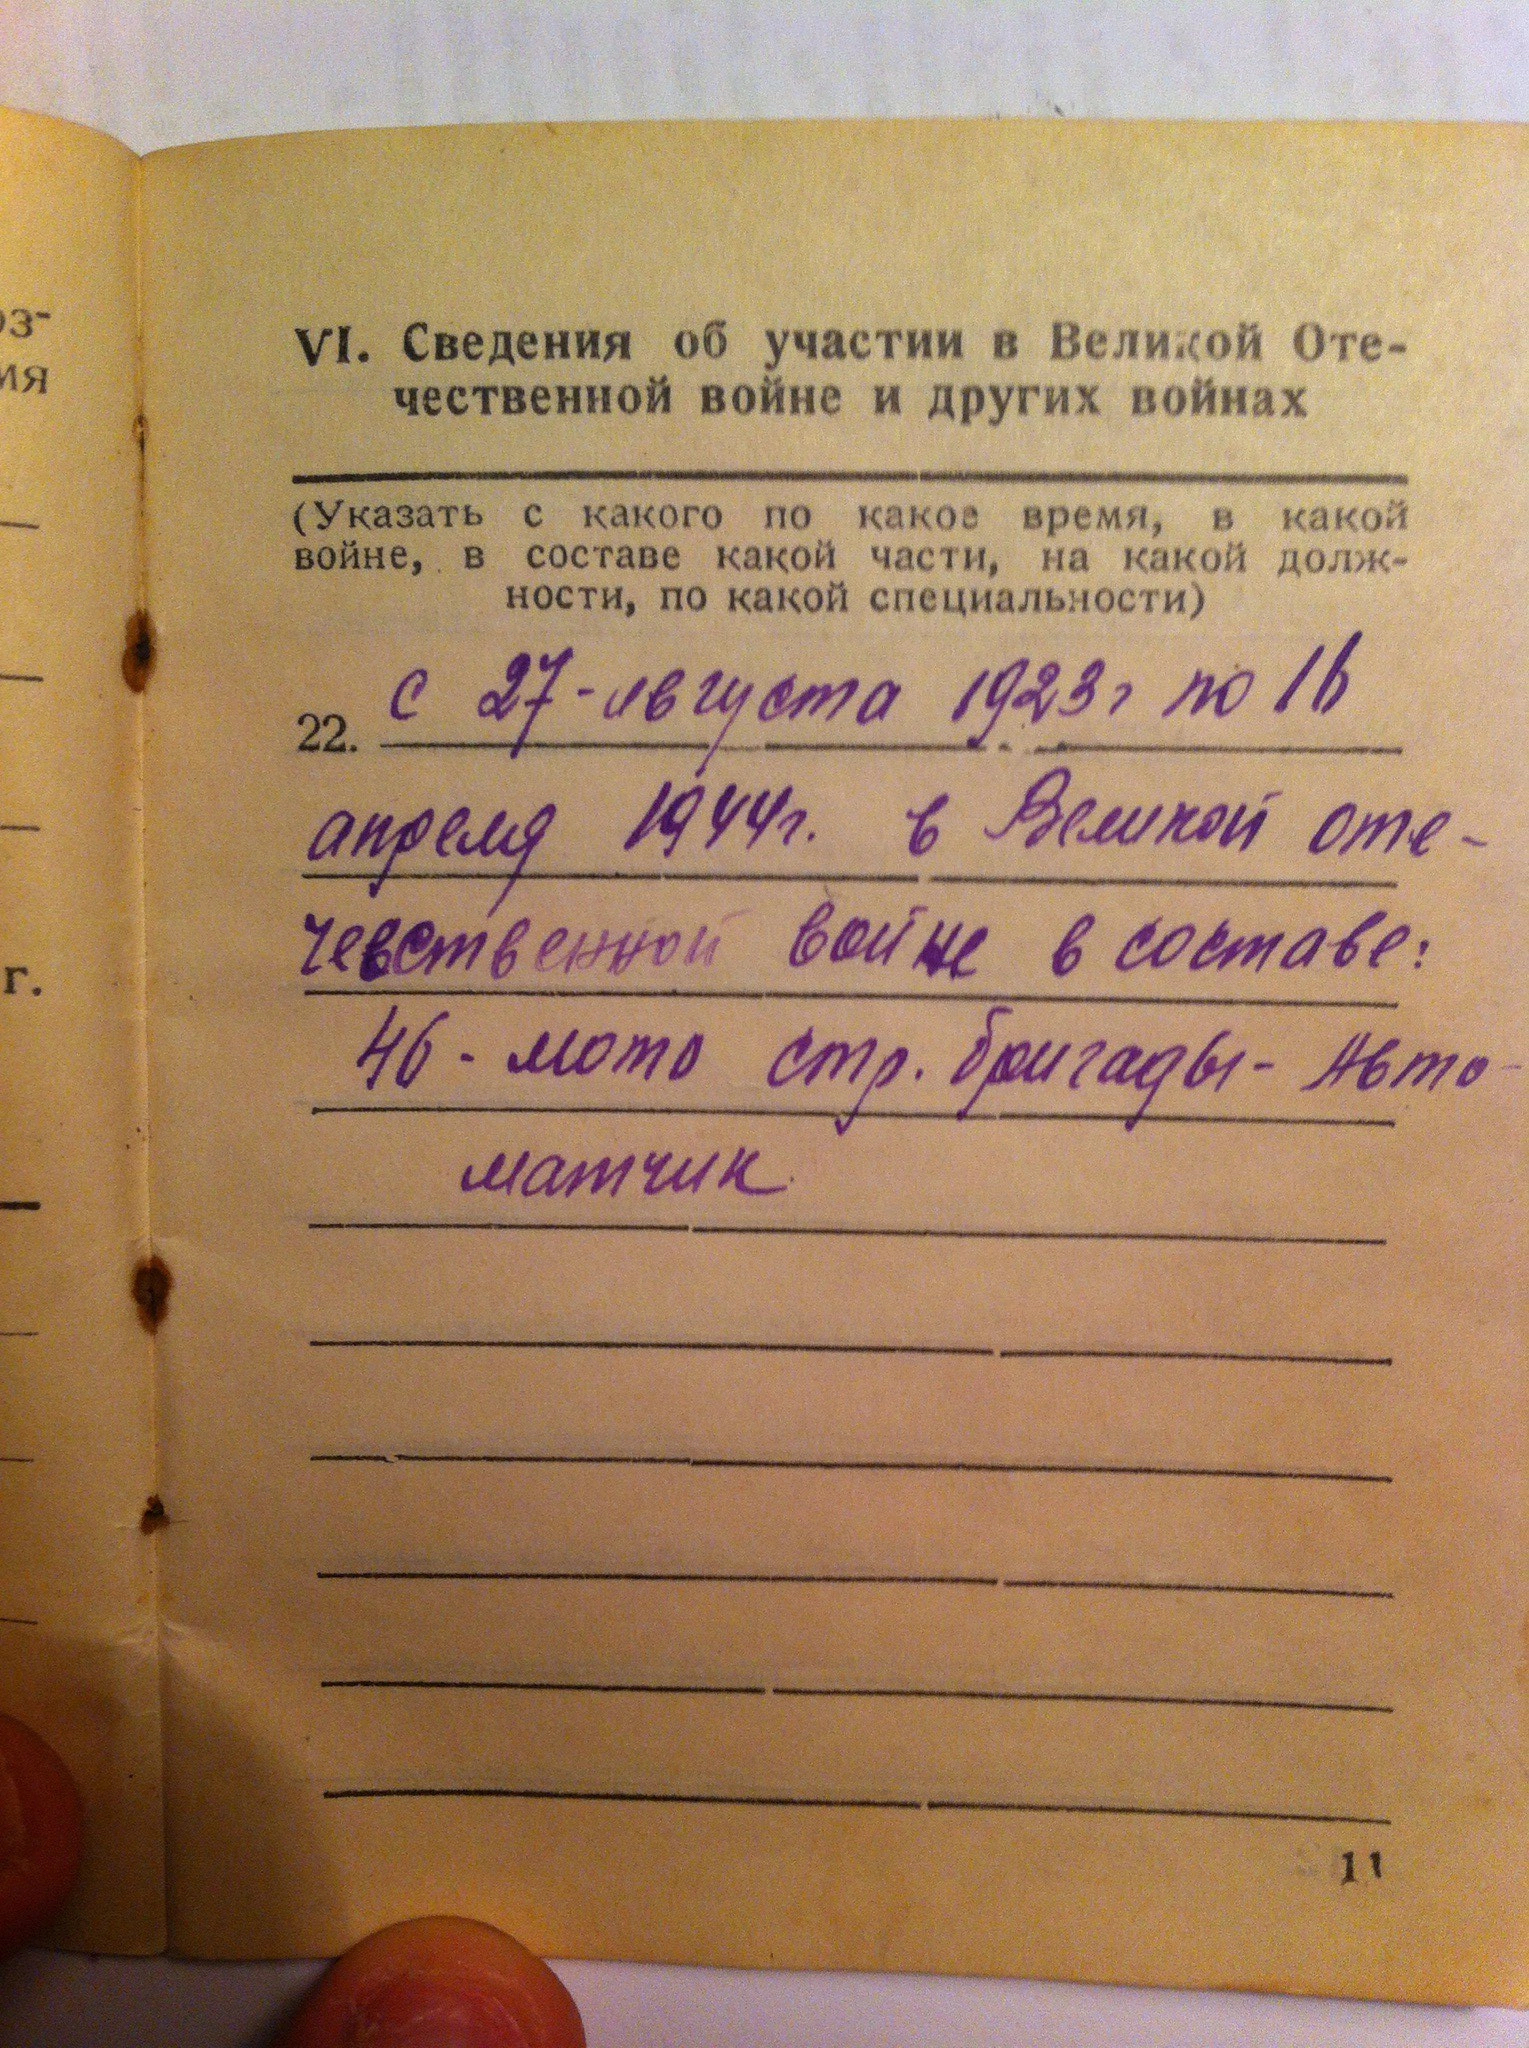 оз-
ия
г.
VI. Сведения об участии в Великой Оте-
чественной войне и других войнах
(Указать с какого по какое время, в какой
войне, в составе какой части, на какой долж-
ности, по какой специальности)
22. с 27-августа 1923г по 16
апреля 1944г. в Великой оте-
чевственной войне в составе:
46-мото стр. бригады- Авто-
матчик.
11